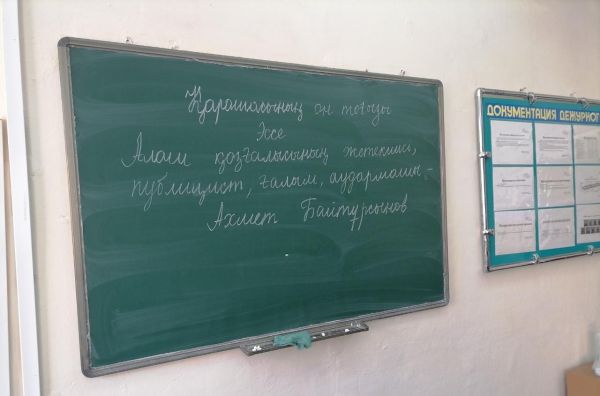 Қарашасының он тоғызы
Эссе
Алаш қозғалысының жетекшісі,
публицист, ғалым, аудармашы
Ахмет Байтұрсынов
ДОКУМЕНТАЦИЯ ДЕЖУРНОГ